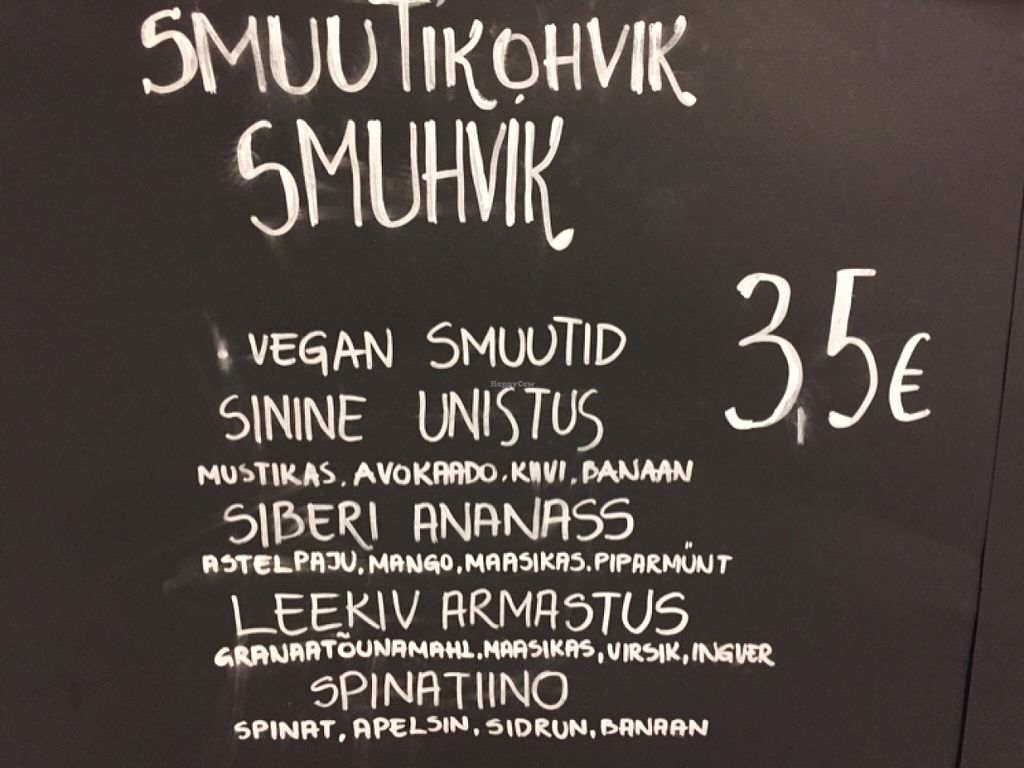 SMUUTIKOHVIK
SMUHVIK
3,5€
. VEGAN SMUUTID
SININE UNISTUS
MUSTIKAS, AVOKAADO, KIIVI, BANAAN
SIBERI ANANASS
ASTELPAJU, MANGO, MAASIKAS, PIPARMÜNT
LEEKIV ARMASTUS
GRANAATÕUNAMAHL, MAASIKAS, VIRSIK, INGVER
SPINATIINO
SPINAT, APELSIN, SIDRUN, BANAAN
HappyCow